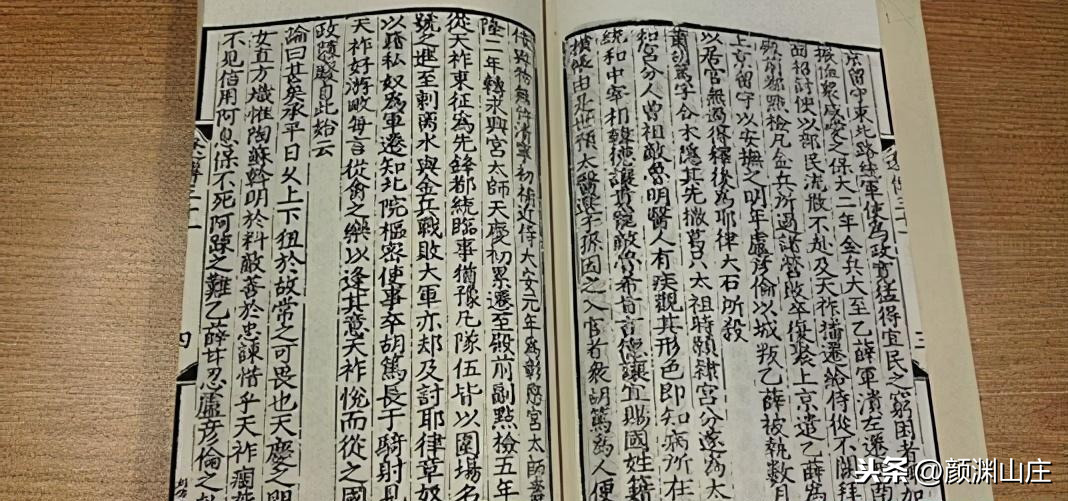 京留守東北路統軍使為政寬猛得宜民之窮困者
振恤眾感愛之保大二年金兵大至乙薛軍潰左遷西南
面招討使以部民流散不赴及天祚播遷給侍從不闕拜
殿前都點檢凡金兵所過諸營敗卒復聚上京遣乙薛為
上京留守以安撫之明年盧彥倫以城叛乙薛被執數月
以居官無過得釋後為耶律大石所殺
蕭胡篤字合朮隱其先撒葛只太祖時願隸宮分遂為太
和宮分人曾祖敵魯明醫人有疾觀其形色即知病所在
統和中宰相韓德讓貴寵敵魯希旨言德讓宜賜國姓籍
橫帳由是世預太醫選子孫因之入官者眾胡篤為人便
佞與物無忤清寧初補近侍大安元年為彰愍宮太師壽
隆二年轉永興宮太師天慶初累遷至殿前副點檢五年
從天祚東征為先鋒都統臨事猶豫凡隊伍皆以圍場名
號之進至剌离水與金兵戰敗大軍亦却及討耶律章奴
以籍私奴為軍遷知北院樞密使事卒胡篤長于騎射見
天祚好游畋每言從禽之樂以逢其意天祚悅而從之國
政隳廢自此始云
論曰甚矣承平日久上下狃於故常之可畏也天慶之間
女直方熾惟陶蘇斡明於料敵善於忠諫惜乎天祚痼蔽
不見信用阿息保不死阿疎之難乙薛甘忍盧彥倫之
四
头条@颜渊山庄